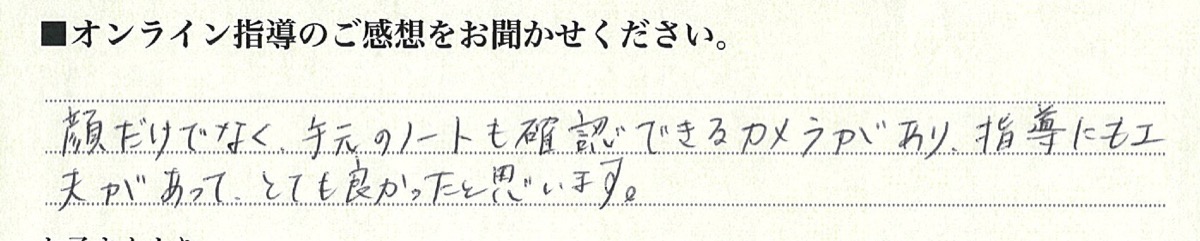 ■オンライン指導のご感想をお聞かせください。
顔だけでなく、手元のノートも確認できるカメラがあり、指導にも工
夫があって、とても良かったと思います。